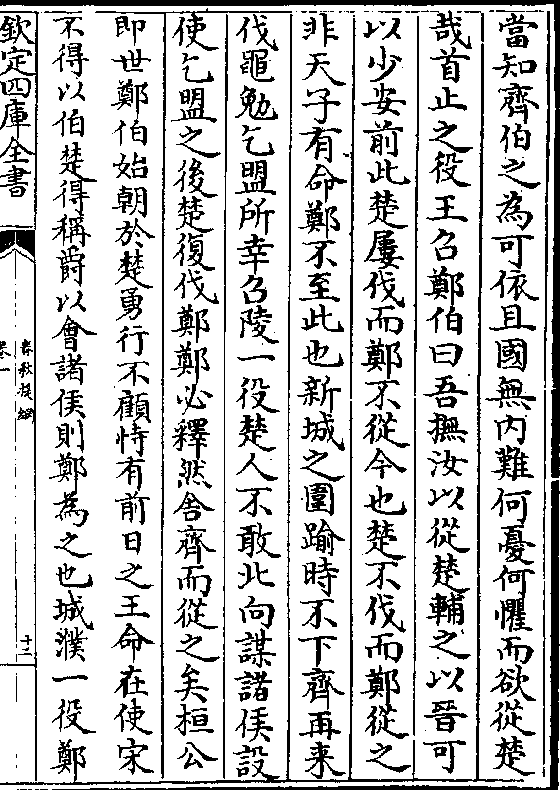 當知齊伯之為可依且國無内難何憂何懼而欲從楚
哉首止之役王召鄭伯曰吾撫汝以從楚輔之以晉可
以少安前此楚屢伐而鄭不從今也楚不伐而鄭從之
非天子有命鄭不至此也新城之圍踰時不下齊再来
伐黽勉乞盟所幸召陵一役楚人不敢北向謀諸侯設
使乞盟之後楚復伐鄭鄭必釋然舍齊而從之矣桓公
即世鄭伯始朝於楚勇行不顧恃有前日之王命在使宋
不得以伯楚得稱爵以會諸侯則鄭為之也城濮一役鄭
欽定四庫全書
春秋提綱
卷一
十二